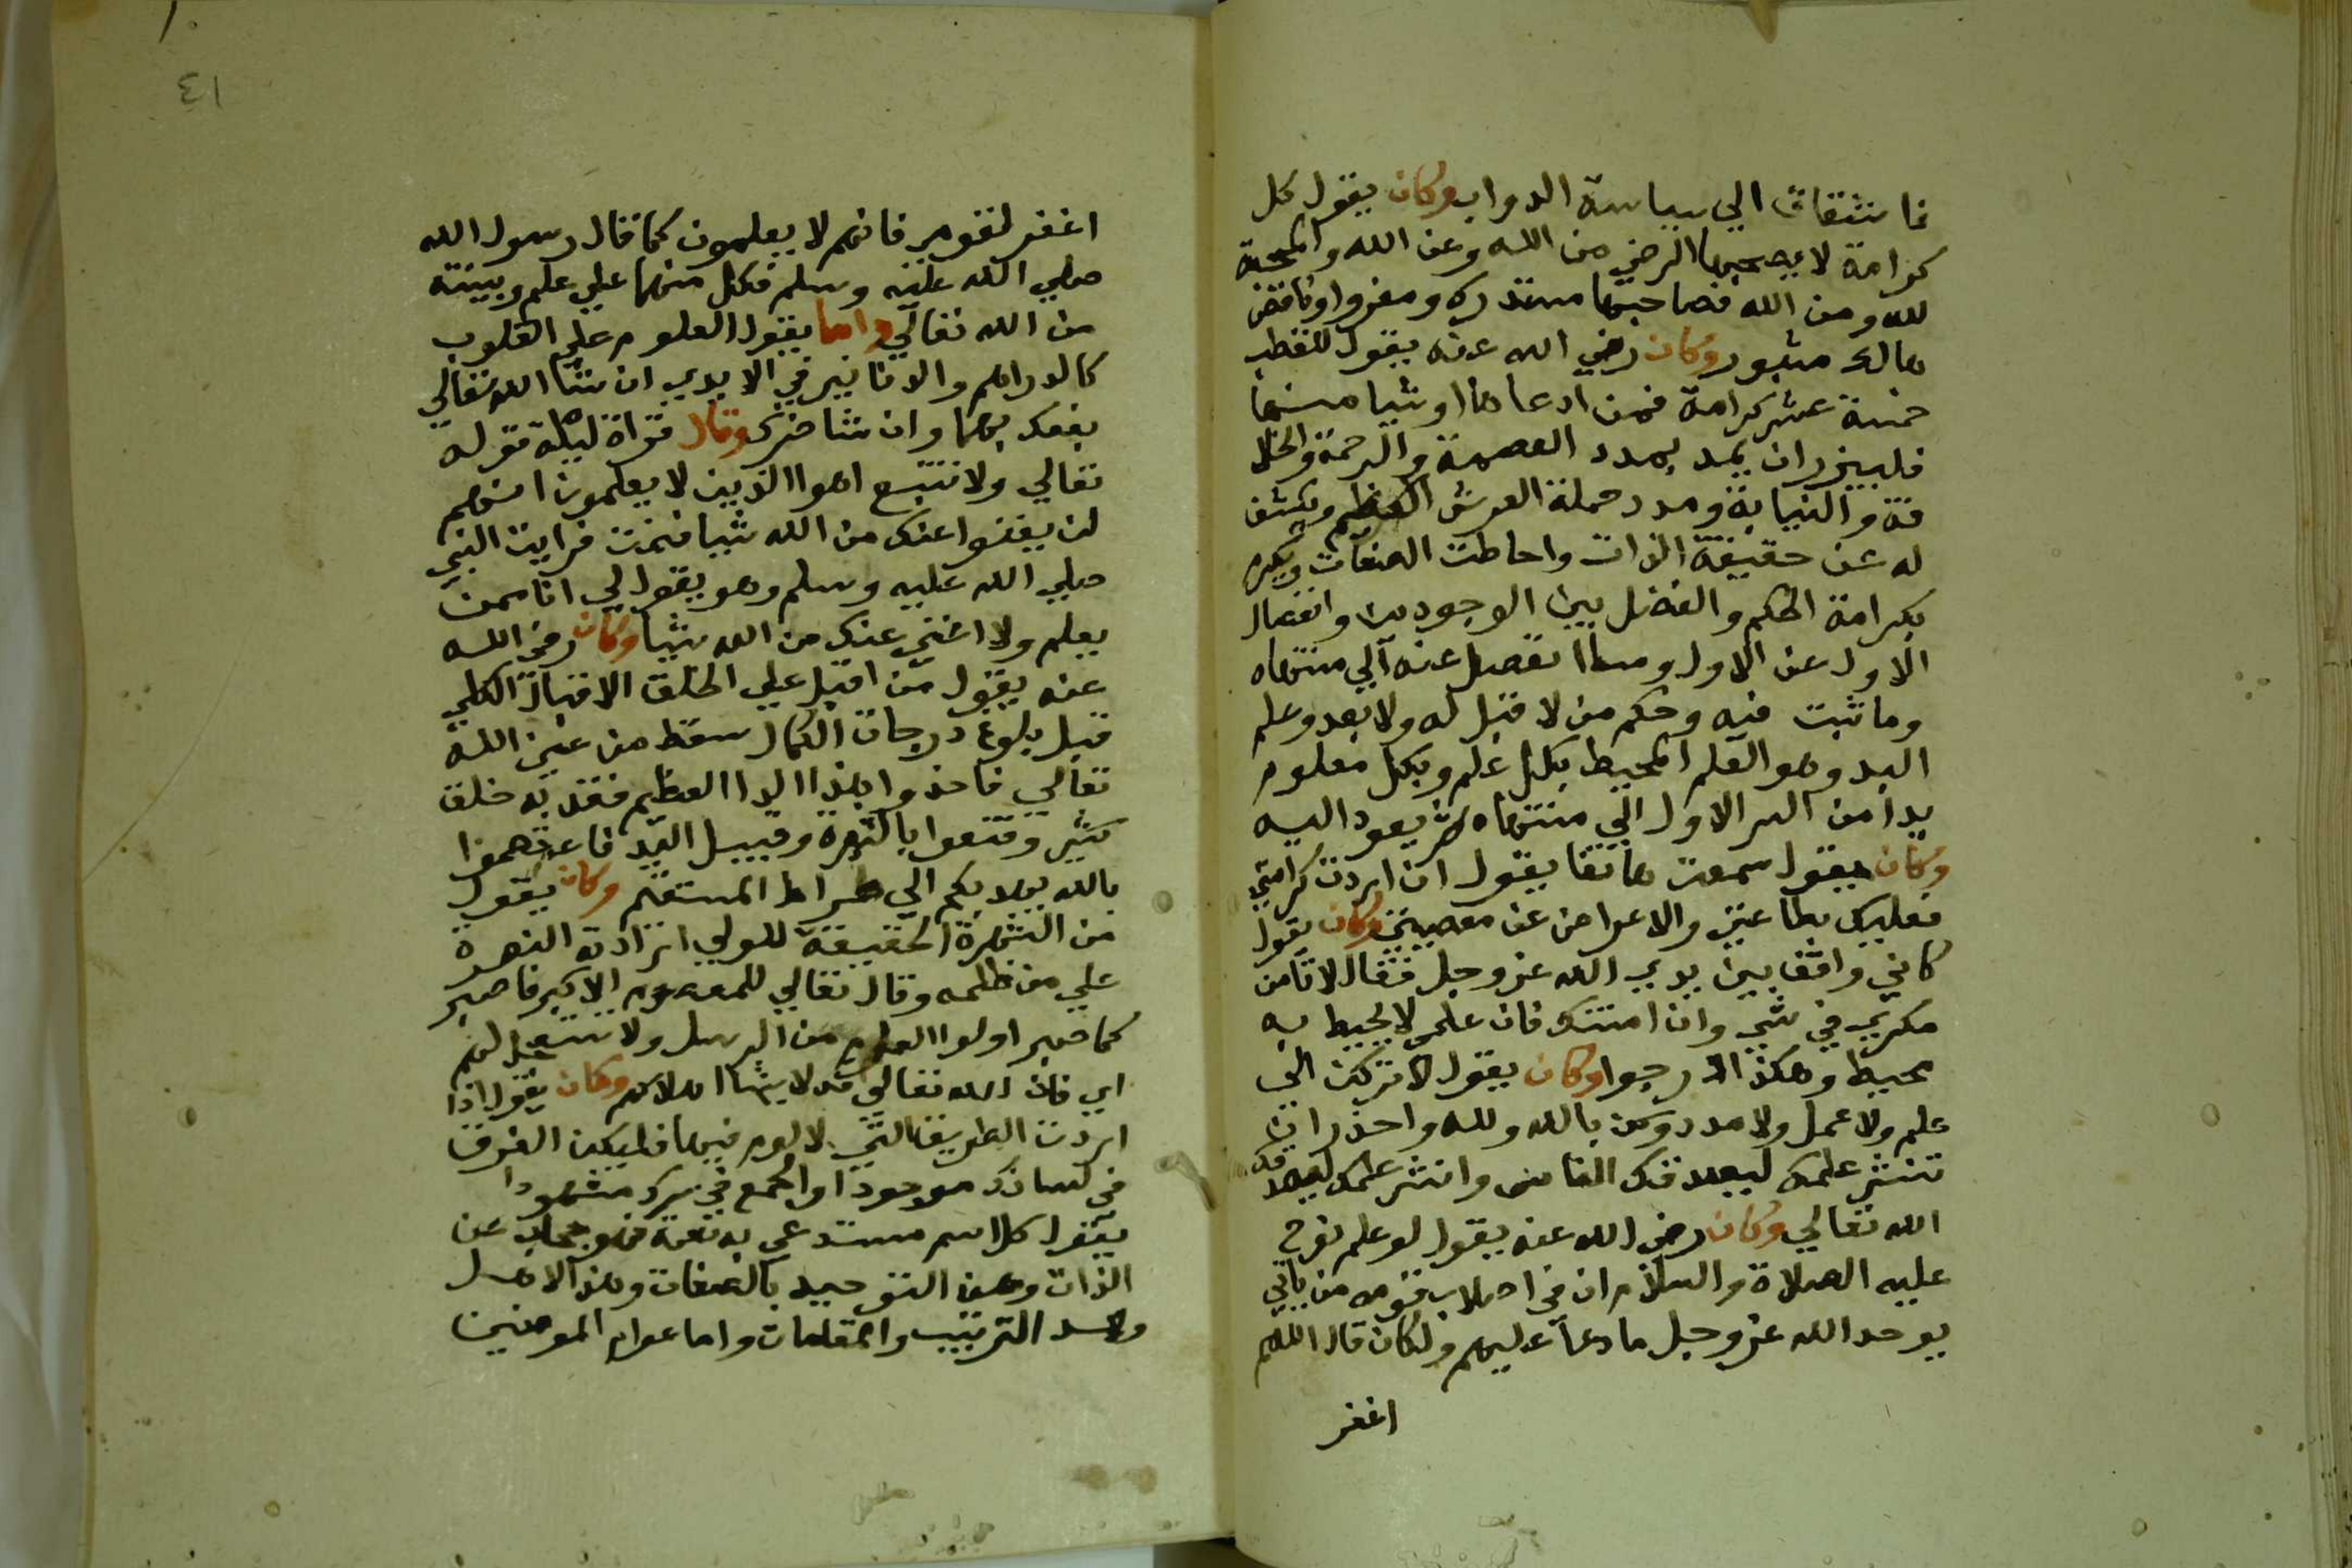 فاشتقاق الي سياسة الدواب وكان يقول كل
كرامة لا يصحبها الرضي من الله وعن الله والمحبة
لله ومن الله فصاحبها مستدرك ومغرور او ناقص
هالك مثبور وكان رضي الله عنه يقول للقطب
خمسة عشر كرامة فمن ادعاها او شيا منها
فليبرزان يمد بمدد العصمة والرحمة والخلا
فة والنيابة ومدد حملة العرش العظيم ويكشف
له عن حقيقة الذات واحاطت الصفات ويكرم
بكرامة الحكم والفضل بين الوجودين وانفصال
الاول عن الاول وما انفصل عنه الي منتهاه
وما ثبت فيه وحكم من لا قبل له ولا بعد وعلم
البد وهو العلم المحيط بكل علم وبكل معلوم
بدا من السر الاول الي منتهاه ثم يعود اليه
وكان يقول سمعت هاتفا يقول ان اردت كرامتي
فعليك بطاعتي والاعراض عن معصيتي وكان يقول
كاني واقف بين يدي الله عز وجل فقال لا تامن
مكري في شي وان امنتك فان علمي لا يحيط به
محيط وهكذا درجوا وكان يقول لا تركن الي
علم ولا عمل ولا مدد وكن بالله ولله واحذر ان
تنشر علمك ليصدقك الناس وانشر علمك ليصدقك
الله تعالي وكان رضي الله عنه يقول لو علم نوح
عليه الصلاة والسلام ان في اصلاب قومه من ياتي
يوحد الله عز وجل ما دعا عليهم ولكان قال اللهم
اغفر
٤١
اغفر لقومي فانهم لا يعلمون كما قال رسول الله
صلي الله عليه وسلم فكل منهما علي علم وبينة
من الله تعالي وايضا يقول العلوم علي القلوب
كالدراهم والدنانير في الايدي ان شا الله تعالي
نفعك بهما وان شا ضرك وقال قراة ليلة قوله
تعالي ولا تتبع اهوا الذين لا يعلمون انهم
لن يغنوا عنك من الله شيا فنمت فرايت النبي
صلي الله عليه وسلم وهو يقول لي انا ممن
يعلم ولا اغني عنك من الله شيا وكان رضي الله
عنه يقول من اقبل علي الخلق الاقبال الكلي
قبل بلوغ درجات الكمال سقط من عين الله
تعالي فاحذروا هذا الدا العظيم فقد به خلق
كثير وقنعوا بالشهرة وقبيل اليد فاعتصموا
بالله يهديكم الي صراط المستقيم وكان يقول
من الشهرة الحقيقة للولي ارادته النصرة
علي من ظلمه وقال تعالي للمعصوم الاكبر فاصبر
كما صبر اولوا العزم من الرسل ولا تستعجل لهم
اي فان الله تعالي قد لا يشا وكان يقول اذا
اردت الطريق التي لا لوم فيها فليكن الفرق
في لسانك موجودا والجمع في سرك مشهودا
يقول كل اسم مستدعي به نعمة فهو حجاب عن
الذات وعن التوحيد بالصفات وهذا لاهل
التربيب والمقامات واما عوام المومنين